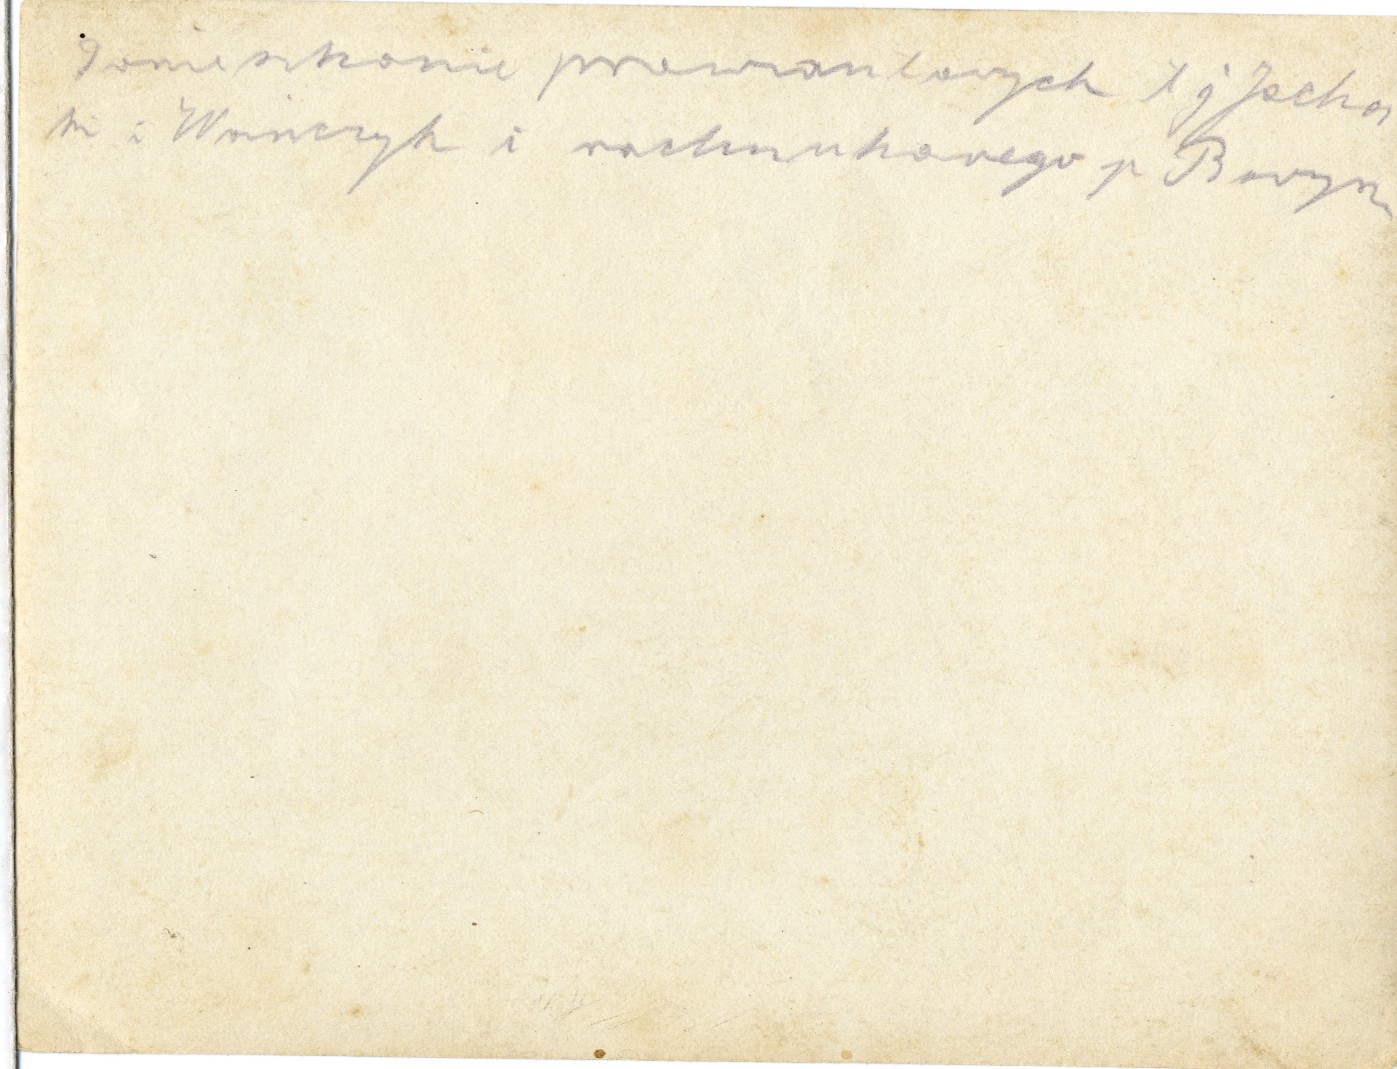 Pomieszkanie prowiantowych t j Jacho
ki i Woińczyk i rachunkowego p